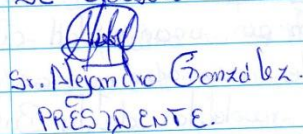 Sr. Alejandro González.
PRESIDENTE.